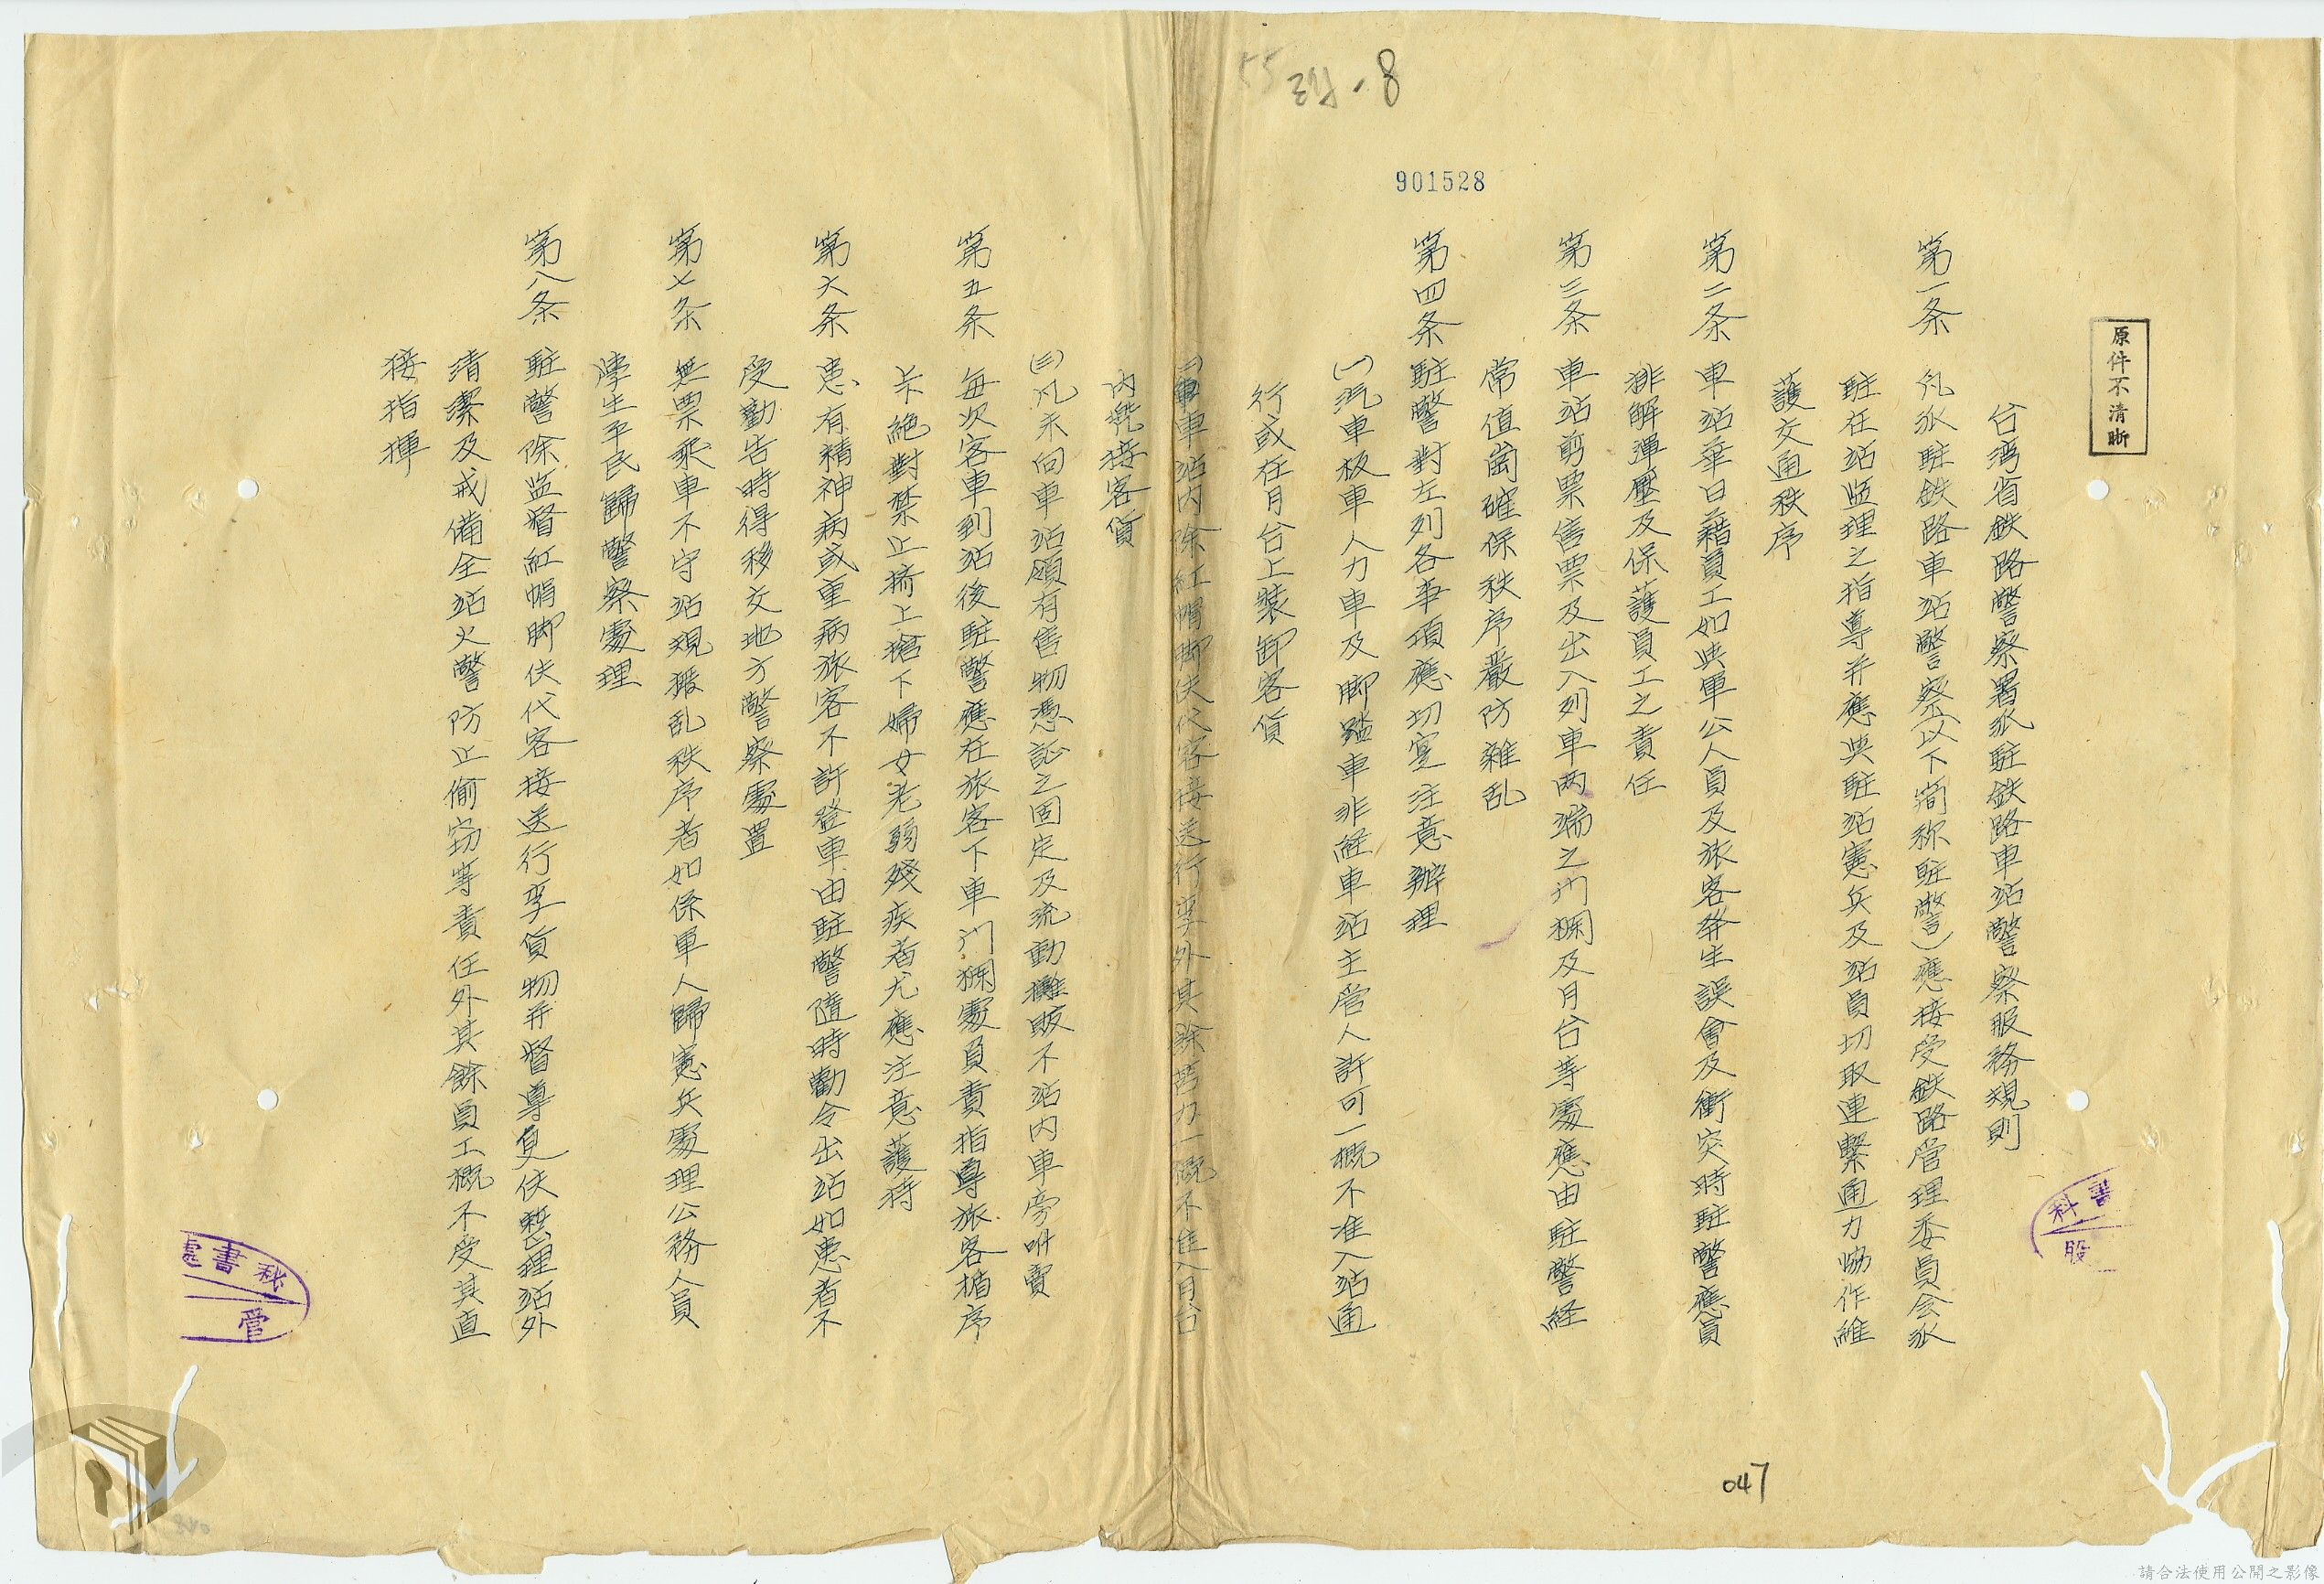 55 乙9-8
901528
原件不清晰
台湾省鉄路警察署派駐鉄路車站警察服務規則
第一条 凡派駐鉄路車站警察(以下简称駐警)應接受鉄路管理委員会派
駐在站监理之指導并應與駐站憲兵及站員切取連繫通力協作維
護交通秩序
第二条 車站華日籍員工如與軍公人員及旅客発生誤會及衝突時駐警應負
排解彈壓及保護員工之責任
第三条 車站剪票售票及出入列車两端之门欄及月台等處應由駐警経
常值崗確保秩序嚴防雜乱
第四条 駐警對左列各事項應切寔注意辦理
(一)汽車板車人力車及脚踏車非経車站主管人許可一概不准入站通
行或在月台上裝卸客貨
(二)車站内除紅帽脚伕代客接送行李外其餘苦力一概不准入月台
内搅接客貨
(三)凡未向車站領有售物憑証之固定及流動攤販不站内車旁叫賣
第五条 每次客車到站後駐警應在旅客下車门欄處負責指導旅客循序
上下絕對禁止擠上搶下婦女老弱殘疾者尤應注意護持
第六条 患有精神病或重病旅客不許登車由駐警隨時勸令出站如患者不
受勸告時得移交地方警察處置
第七条 無票乘車不守站規擾乱秩序者如係軍人歸憲兵處理公務人員
学生平民歸警察處理
第八条 駐警除监督紅帽脚伕代客接送行李貨物并督導伕整理站外
清潔及戒備全站火警防止偷窃等責任外其餘員工概不受其直
接指揮
書
科
股
秘書處
管
047
請合法使用公開之影像